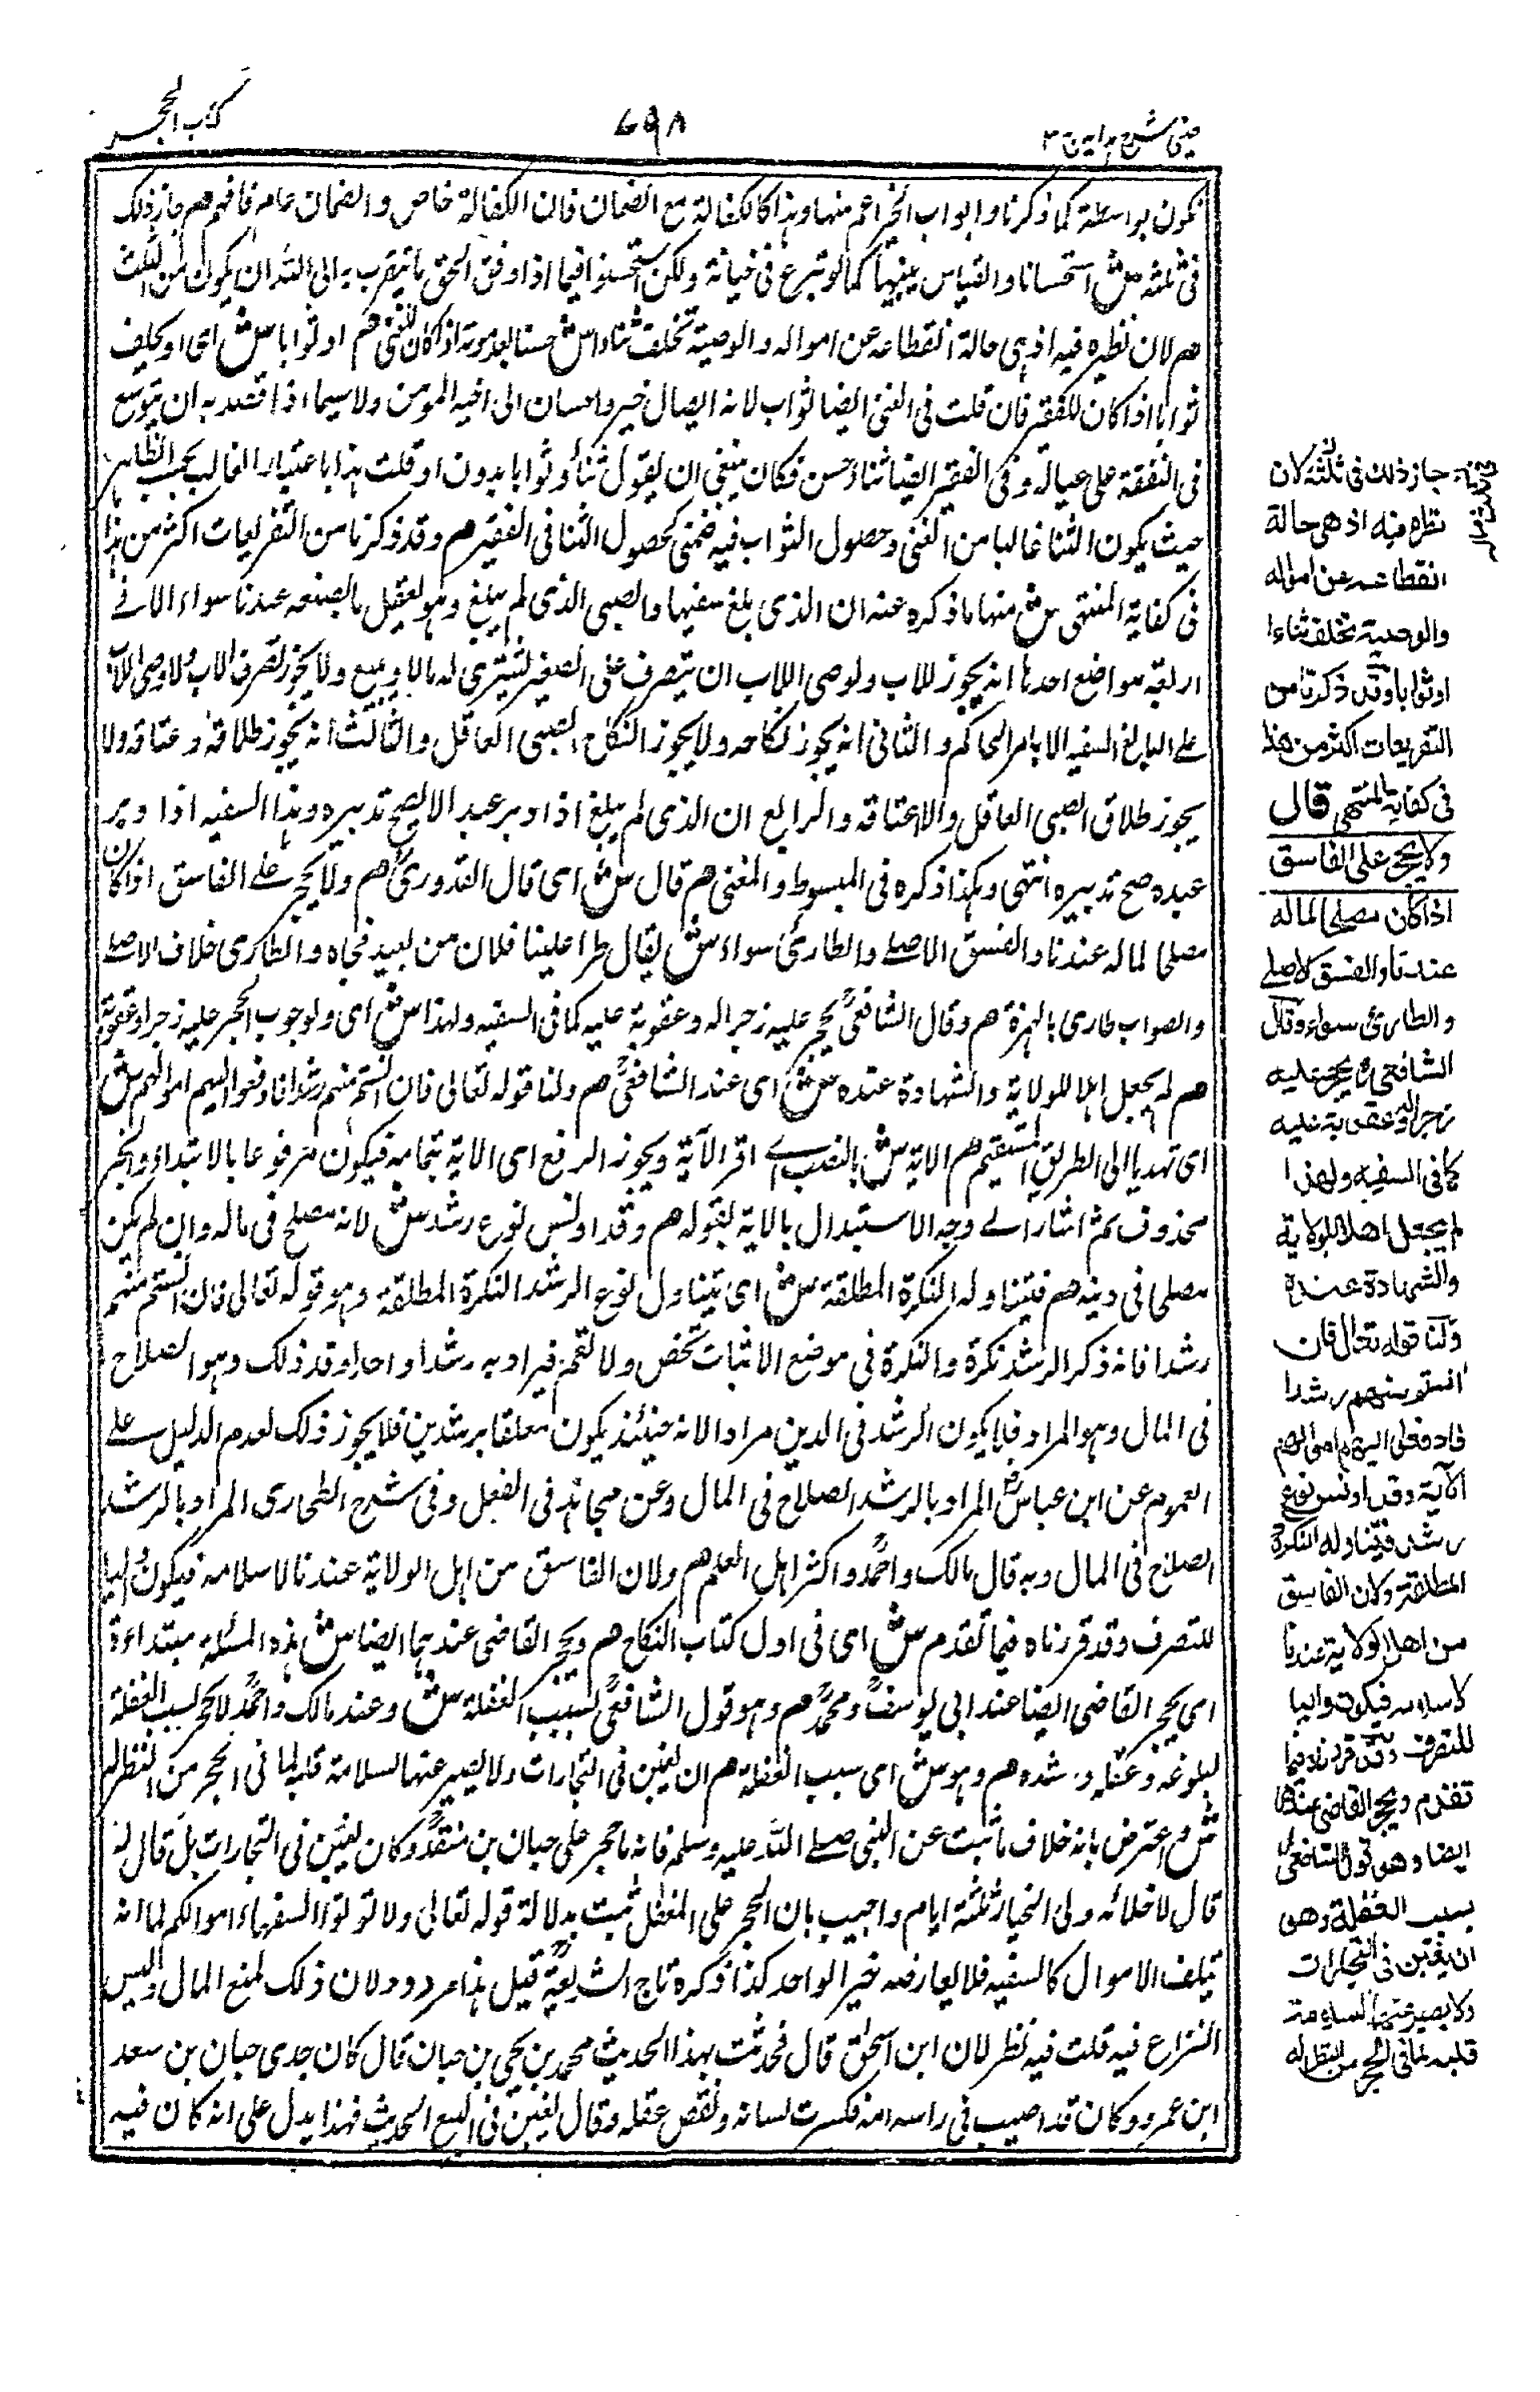 كتاب الحجر
٦٩٨
عينى شرح هدايه ج ٣
تكون بواسطة كما ذكرنا وابواب الخير اعم منها وهذا كالكفالة مع الضمان فان الكفالة خاص والضمان عام فافهم هم جاز ذلك
فى ثلثه ش استحسانا والقياس ينفيها كما لو تبرع فى حياته ولكن استحسنوا فيما اذا وفق الحق ما يتقرب به الى الله ان يكون له من الثلث
هم لان نظره فيه اذ هى حالة انقطاعه عن امواله والوصية تخلف ثناء ش حسنا بعد موته اذا كان للغنى هم او ثوابا ش اى او يخلف
ثوابا اذا كان للفقير فان قلت فى الغنى ايضا ثواب لانه ايصال خير واحسان الى اخيه المؤمن ولا سيما اذا قصد به ان يتوسع
فى النفقة على عياله وفى الفقير ايضا ثناء حسن فكان ينبغى ان يقول ثناء وثوابا بدون او قلت هذا باعتبار الغالب بحسب الظاهر
حيث يكون الثنا غالبا من الغنى وحصول الثواب فيه ضمنى كحصول الثنا فى الفقير هم وقد ذكرنا من التفريعات اكثر من هذا
فى كفاية المنتهى ش منها ما ذكره عنه ان الذى بلغ سفيها والصبى الذى لم يبلغ وهو يعقل ما يصنعه عندنا سواء الا فى
اربعة مواضع احدها انه يجوز للاب ولوصى الاب ان يتصرف على الصغير يشترى له مالا ويبيع ولا يجوز تصرف الاب ولا وصى الاب
على البالغ السفيه الا بامر الحاكم والثانى انه يجوز نكاحه ولا يجوز النكاح الصبى العاقل والثالث انه يجوز طلاقه وعتاقه ولا
يجوز طلاق الصبى العاقل ولا اعتاقه والرابع ان الذى لم يبلغ اذا دبر عبد الا يصح تدبيره وهذا السفيه اذا دبر
عبده صح تدبيره انتهى وهكذا ذكره فى المبسوط والمغنى هم قال ش اى قال القدورى هم ولا يحجر على الفاسق اذا كان
مصلحا لماله عندنا والفسق الاصلى والطارئ سواء ش يقال طرا علينا فلان من بعيد فجاه والطارى خلاف الاصلى
والصواب طارى بالهمزة هم وقال الشافعى يحجر عليه زجرا له وعقوبة عليه كما فى السفيه ولهذا ش اى ولوجوب الحجر عليه زجرا وعقوبة
هم لم يجعل اهلا للولاية والشهادة عنده ش اى عند الشافعى هم ولنا قوله تعالى فان انستم منهم رشدا فادفعوا اليهم اموالهم ش
اى تهديا الى الطريق المستقيم هم الاية ش بالنصب اى اقرا الآية ويجوز الرفع اى الاية بتمامه فيكون مرفوعا بالابتداء والخبر
محذوف ثم اشار الى وجه الاستبدال بالاية بقوله هم وقد اونس نوع رشد ش لانه مصلح فى ماله وان لم يكن
مصلحا فى دينه هم فتناوله النكرة المطلقة ش اى يتناول نوع الرشد النكرة المطلقة وهو قوله تعالى فان انستم منهم
رشدا فانه ذكر الرشد نكرة والنكرة فى موضع الاثبات تخص ولا تعم فيراد به رشدا واحدا وقد ذلك وهو الصلاح
فى المال وهو المراد فلا يكون الرشد فى الدين مرادا لانه حينئذ يكون معلقا برشدين فلا يجوز ذلك لعدم الدليل على
العموم عن ابن عباس المراد بالرشد الصلاح فى المال وعن مجاهد فى الفعل وفى شرح الطحاوى المراد بالرشد
الصلاح فى المال وبه قال مالك واحمد واكثر اهل العلم هم ولان الفاسق من اهل الولاية عندنا لاسلامه فيكون واليا
للتصرف وقد قررناه فيما تقدم ش اى فى اول كتاب النكاح هم ويحجر القاضى عندهما ايضا ش هذه المسئلة مبتداءة
اى يحجر القاضى ايضا عند ابى يوسف ومحمد هم وهو قول الشافعى بسبب الغفلة ش وعند مالك واحمد لا يحجر بسبب الغفلة
لبلوغه وعقله ورشده هم وهو ش اى سبب الغفلة هم ان يغبن فى التجارات ولا يصبر عنها لسلامة قلبه لما فى الحجر من النظر له
ش واعترض بانه خلاف ما ثبت عن النبى صلى الله عليه وسلم فانه ما حجر على حبان بن منقذ وكان يغبن فى التجارات بل قال له
قال لا خلابه ولى الخيار ثلثة ايام واجيب بان الحجر على المغفل ثبت بدلالة قوله تعالى ولا تؤتوا السفهاء اموالكم لما انه
يتلف الاموال كالسفيه فلا يعارضه خبر الواحد كذا ذكره تاج الشريعة قيل هذا مردود لان ذلك لمنع المال وليس
النزاع فيه قلت فيه نظر لان ابن اسحق قال فحدثت بهذا الحديث محمد بن يحيى بن حبان قال كان جدى حبان بن سعد
ابن عمرو وكان قد اصيب فى راسه امه فكسرت لسانه ونقص عقله وقال يغبن فى البيع الحديث فهذا يدل على انه كان فيه
جاز ذلك فى ثلثه لان
نظره فيه اذ هى حالة
انقطاعه عن امواله
والوصية تخلف ثناءا
او ثوابا وقد ذكرنا من
التفريعات اكثر من هذا
فى كفاية المنتهى قال
ولا يحجر على الفاسق
اذا كان مصلحا لماله
عندنا والفسق الاصلى
والطارئ سواء وقال
الشافعى يحجر عليه
زجرا له وعقوبة عليه
كما فى السفيه ولهذا
لم يجعل اهلا للولاية
والشهادة عنده
ولنا قوله تعالى فان
انستم منهم رشدا
فادفعوا اليهم اموالهم
الآية وقد اونس نوع
رشد فتتناوله النكرة
المطلقة ولان الفاسق
من اهل الولاية عندنا
لاسلامه فيكون واليا
للتصرف وقد قررناه فيما
تقدم ويحجر القاضى عندهما
ايضا وهو قول الشافعى
بسبب الغفلة وهو
ان يغبن فى التجارات
ولا يصبر عنها لسلامة
قلبه لما فى الحجر من النظر له